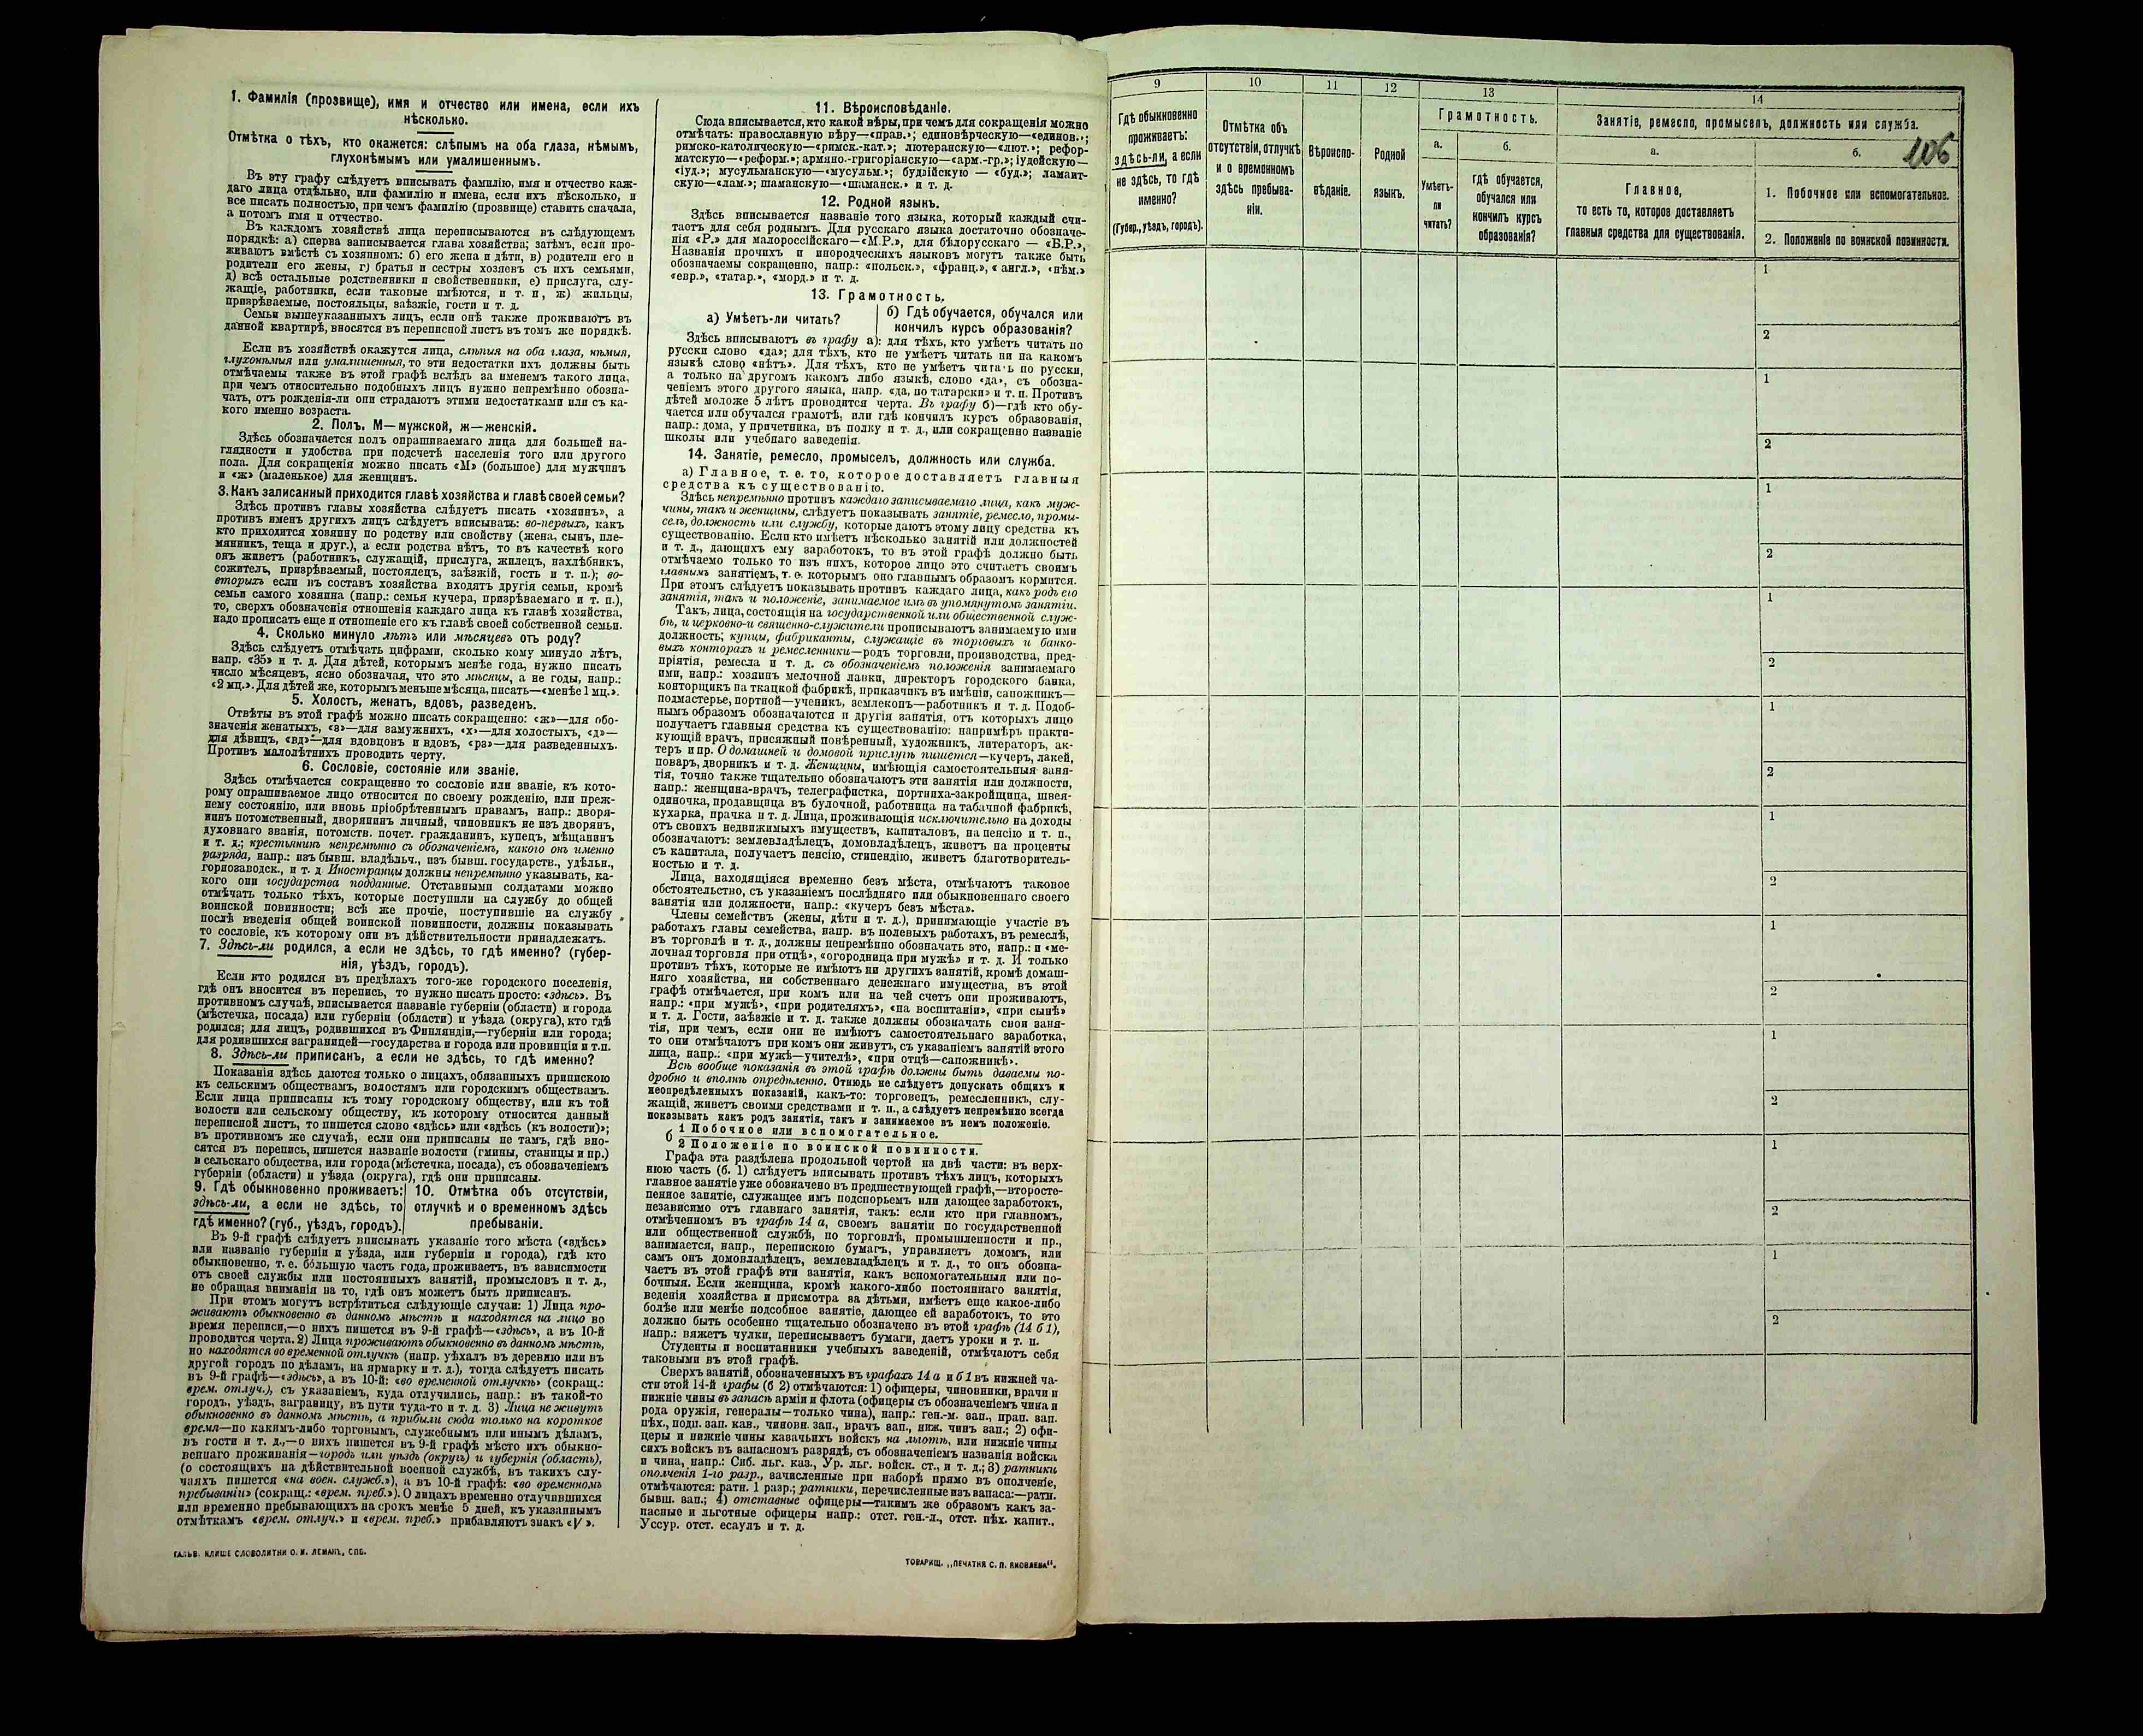 1. Фамилія (прозвище), имя и отчество или имена, если ихъ
нѣсколько.
Отмѣтка о тѣхъ, кто окажется: слѣпымъ на оба глаза, нѣмымъ,
глухонѣмымъ или умалишеннымъ.
Въ эту графу слѣдуетъ вписывать фамилію, имя и отчество каж-
даго лица отдѣльно, или фамилію и имена, если ихъ нѣсколько, и
все писать полностью, при чемъ фамилію (прозвище) ставить сначала,
а потомъ имя и отчество.
Въ каждомъ хозяйствѣ лица переписываются въ слѣдующемъ
порядкѣ: а) сперва записывается глава хозяйства; затѣмъ, если про-
живаютъ вмѣстѣ съ хозяиномъ: б) его жена и дѣти, в) родители его и
родители его жены, г) братья и сестры хозяевъ съ ихъ семьями,
д) всѣ остальные родственники и свойственники, е) прислуга, слу-
жащіе, работники, если таковые имѣются, и т. п, ж) жильцы,
призрѣваемые, постояльцы, заѣзжіе, гости и т. д.
Семьи вышеуказанныхъ лицъ, если онѣ также проживаютъ въ
данной квартирѣ, вносятся въ переписной листъ въ томъ же порядкѣ.
Если въ хозяйствѣ окажутся лица, слѣпыя на оба глаза, нѣмыя,
глухонѣмыя или умалишенныя, то эти недостатки ихъ должны быть
отмѣчаемы также въ этой графѣ вслѣдъ за именемъ такого лица,
при чемъ относительно подобныхъ лицъ нужно непремѣнно обозна-
чать, отъ рожденія-ли они страдаютъ этими недостатками или съ ка-
кого именно возраста.
2. Полъ, М—мужской, ж—женскій.
Здѣсь обозначается полъ опрашиваемаго лица для большей на-
глядности и удобства при подсчетѣ населенія того или другого
пола. Для сокращенія можно писать «М» (большое) для мужчинъ
и «ж» (маленькое) для женщинъ.
3. Какъ записанный приходится главѣ хозяйства и главѣ своей семьи?
Здѣсь противъ главы хозяйства слѣдуетъ писать «хозяинъ», а
противъ именъ другихъ лицъ слѣдуетъ вписывать: во-первыхъ, какъ
кто приходится хозяину по родству или свойству (жена, сынъ, пле-
мянникъ, теща и друг.), а если родства нѣтъ, то въ качествѣ кого
онъ живетъ (работникъ, служащій, прислуга, жилецъ, нахлѣбникъ,
сожитель, призрѣваемый, постоялецъ, заѣзжій, гость и т. п.); во-
вторыхъ если въ составъ хозяйства входятъ другія семьи, кромѣ
семьи самого хозяина (напр.: семья кучера, призрѣваемаго и т. п.),
то, сверхъ обозначенія отношенія каждаго лица къ главѣ хозяйства,
надо прописать еще и отношеніе его къ главѣ своей собственной семьи.
4. Сколько минуло лѣтъ или мѣсяцевъ отъ роду?
Здѣсь слѣдуетъ отмѣчать цифрами, сколько кому минуло лѣтъ,
напр. «35» и т. д. Для дѣтей, которымъ менѣе года, нужно писать
число мѣсяцевъ, ясно обозначая, что это мѣсяцы, а не годы, напр.:
«2 мц.». Для дѣтей же, которымъ меньше мѣсяца, писать—«менѣе 1 мц.».
5. Холостъ, женатъ, вдовъ, разведенъ.
Отвѣты въ этой графѣ можно писать сокращенно: «ж»—для обо-
значенія женатыхъ, «з»—для замужнихъ, «х»—для холостыхъ, «д»—
для дѣвицъ, «вд»—для вдовцовъ и вдовъ, «рз»—для разведенныхъ.
Противъ малолѣтнихъ проводить черту.
6. Сословіе, состояніе или званіе.
Здѣсь отмѣчается сокращенно то сословіе или званіе, къ кото-
рому опрашиваемое лицо относится по своему рожденію, или преж-
нему состоянію, или вновь пріобрѣтеннымъ правамъ, напр.: дворя-
нинъ потомственный, дворянинъ личный, чиновникъ не изъ дворянъ,
духовнаго званія, потомств. почет. гражданинъ, купецъ, мѣщанинъ
и т. д.; крестьянинъ непремѣнно съ обозначеніемъ, какого онъ именно
разряда, напр.: изъ бывш. владѣльч., изъ бывш. государств., удѣльн.,
горнозаводск., и т. д Иностранцы должны непремѣнно указывать, ка-
кого они государства подданные. Отставными солдатами можно
отмѣчать только тѣхъ, которые поступили на службу до общей
воинской повинности; всѣ же прочіе, поступившіе на службу
послѣ введенія общей воинской повинности, должны показывать
то сословіе, къ которому они въ дѣйствительности принадлежатъ.
7. Здѣсь-ли родился, а если не здѣсь, то гдѣ именно? (губер-
нія, уѣздъ, городъ).
Если кто родился въ предѣлахъ того-же городского поселенія,
гдѣ онъ вносится въ перепись, то нужно писать просто: «здѣсь». Въ
противномъ случаѣ, вписывается названіе губерніи (области) и города
(мѣстечка, посада) или губерніи (области) и уѣзда (округа), кто гдѣ
родился; для лицъ, родившихся въ Финляндіи,—губерніи или города;
для родившихся заграницей—государства и города или провинціи и т.п.
8. Здѣсь-ли приписанъ, а если не здѣсь, то гдѣ именно?
Показанія здѣсь даются только о лицахъ, обязанныхъ припискою
къ сельскимъ обществамъ, волостямъ или городскимъ обществамъ.
Если лица приписаны къ тому городскому обществу, или къ той
волости или сельскому обществу, къ которому относится данный
переписной листъ, то пишется слово «здѣсь» или «здѣсь (къ волости)»;
въ противномъ же случаѣ, если они приписаны не тамъ, гдѣ вно-
сятся въ перепись, пишется названіе волости (гмины, станицы и пр.)
и сельскаго общества, или города (мѣстечка, посада), съ обозначеніемъ
губерніи (области) и уѣзда (округа), гдѣ они приписаны.
9. Гдѣ обыкновенно проживаетъ:
здѣсь-ли, а если не здѣсь, то
гдѣ именно? (губ., уѣздъ, городъ).
10. Отмѣтка объ отсутствіи,
отлучкѣ и о временномъ здѣсь
пребываніи.
Въ 9-й графѣ слѣдуетъ вписывать указаніе того мѣста («здѣсь»
или названіе губерніи и уѣзда, или губерніи и города), гдѣ кто
обыкновенно, т. е. бо́льшую часть года, проживаетъ, въ зависимости
отъ своей службы или постоянныхъ занятій, промысловъ и т. д.,
не обращая вниманія на то, гдѣ онъ можетъ быть приписанъ.
При этомъ могутъ встрѣтиться слѣдующіе случаи: 1) Лица про-
живаютъ обыкновенно въ данномъ мѣстѣ и находятся на лицо во
время переписи,—о нихъ пишется въ 9-й графѣ—«здѣсь», а въ 10-й
проводится черта. 2) Лица проживаютъ обыкновенно въ данномъ мѣстѣ,
но находятся во временной отлучкѣ (напр. уѣхалъ въ деревню или въ
другой городъ по дѣламъ, на ярмарку и т. д.), тогда слѣдуетъ писать
въ 9-й графѣ—«здѣсь», а въ 10-й: «во временной отлучкѣ» (сокращ.:
врем. отлуч.), съ указаніемъ, куда отлучились, напр.: въ такой-то
городъ, уѣздъ, заграницу, въ пути туда-то и т. д. 3) Лица не живутъ
обыкновенно въ данномъ мѣстѣ, а прибыли сюда только на короткое
время—по какимъ-либо торговымъ, служебнымъ или инымъ дѣламъ,
въ гости и т. д.,—о нихъ пишется въ 9-й графѣ мѣсто ихъ обыкно-
веннаго проживанія—городъ или уѣздъ (округъ) и губернія (область),
(о состоящихъ на дѣйствительной военной службѣ, въ такихъ слу-
чаяхъ пишется «на воен. служб.»), а въ 10-й графѣ: «во временномъ
пребываніи» (сокращ.: «врем. преб.»). О лицахъ временно отлучившихся
или временно пребывающихъ на срокъ менѣе 5 дней, къ указаннымъ
отмѣткамъ «врем. отлуч.» и «врем. преб.» прибавляютъ знакъ «V».
ГАЛЬВ. КЛИШЕ СЛОВОЛИТНИ О. И. ЛЕМАНЪ, СПБ.
11. Вѣроисповѣданіе.
Сюда вписывается, кто какой вѣры, при чемъ для сокращенія можно
отмѣчать: православную вѣру—«прав.»; единовѣрческую—«единов.»;
римско-католическую—«римск.-кат.»; лютеранскую—«лют.»; рефор-
матскую—«реформ.»; армяно.-григоріанскую—«арм.-гр.»; іудейскую—
«іуд.»; мусульманскую—«мусульм.»; буддійскую — «буд.»; ламаит-
скую—«лам.»; шаманскую—«шаманск.» и т. д.
12. Родной языкъ.
Здѣсь вписывается названіе того языка, который каждый счи-
таетъ для себя роднымъ. Для русскаго языка достаточно обозначе-
нія «Р.» для малороссійскаго—«М.Р.», для бѣлорусскаго — «Б.Р.»,
Названія прочихъ и инородческихъ языковъ могутъ также быть
обозначаемы сокращенно, напр.: «польск.», «франц.», «англ.», «нѣм.»
«евр.», «татар.», «морд.» и т. д.
13. Грамотность.
а) Умѣетъ-ли читать?
б) Гдѣ обучается, обучался или
кончилъ курсъ образованія?
Здѣсь вписываютъ въ графу а): для тѣхъ, кто умѣетъ читать по
русски слово «да»; для тѣхъ, кто не умѣетъ читать ни на какомъ
языкѣ слово «нѣтъ». Для тѣхъ, кто не умѣетъ читать по русски,
а только на другомъ какомъ либо языкѣ, слово «да», съ обозна-
ченіемъ этого другого языка, напр. «да, по татарски» и т. п. Противъ
дѣтей моложе 5 лѣтъ проводится черта. Въ графу б)—гдѣ кто обу-
чается или обучался грамотѣ, или гдѣ кончилъ курсъ образованія,
напр.: дома, у причетника, въ полку и т. д., или сокращенно названіе
школы или учебнаго заведенія.
14. Занятіе, ремесло, промыселъ, должность или служба.
а) Главное, т. е. то, которое доставляетъ главныя
средства къ существованію.
Здѣсь непремѣнно противъ каждаго записываемаго лица, какъ муж-
чины, такъ и женщины, слѣдуетъ показывать занятіе, ремесло, промы-
селъ, должность или службу, которые даютъ этому лицу средства къ
существованію. Если кто имѣетъ нѣсколько занятій или должностей
и т. д., дающихъ ему заработокъ, то въ этой графѣ должно быть
отмѣчаемо только то изъ нихъ, которое лицо это считаетъ своимъ
главнымъ занятіемъ, т. е. которымъ оно главнымъ образомъ кормится.
При этомъ слѣдуетъ показывать противъ каждаго лица, какъ родъ его
занятія, такъ и положеніе, занимаемое имъ въ упомянутомъ занятіи.
Такъ, лица, состоящія на государственной или общественной служ-
бѣ, и церковно-и священно-служители прописываютъ занимаемую ими
должность; купцы, фабриканты, служащіе въ торговыхъ и банко-
выхъ конторахъ и ремесленники—родъ торговли, производства, пред-
пріятія, ремесла и т. д. съ обозначеніемъ положенія занимаемаго
ими, напр.: хозяинъ мелочной лавки, директоръ городского банка,
конторщикъ на ткацкой фабрикѣ, приказчикъ въ имѣніи, сапожникъ—
подмастерье, портной—ученикъ, землекопъ—работникъ и т. д. Подоб-
нымъ образомъ обозначаются и другія занятія, отъ которыхъ лицо
получаетъ главныя средства къ существованію: напримѣръ практи-
кующій врачъ, присяжный повѣренный, художникъ, литераторъ, ак-
теръ и пр. О домашней и домовой прислугѣ пишется—кучеръ, лакей,
поваръ, дворникъ и т. д. Женщины, имѣющія самостоятельныя заня-
тія, точно также тщательно обозначаютъ эти занятія или должности,
напр.: женщина-врачъ, телеграфистка, портниха-закройщица, швея-
одиночка, продавщица въ булочной, работница на табачной фабрикѣ,
кухарка, прачка и т. д. Лица, проживающія исключительно на доходы
отъ своихъ недвижимыхъ имуществъ, капиталовъ, на пенсію и т. п.,
обозначаютъ: землевладѣлецъ, домовладѣлецъ, живетъ на проценты
съ капитала, получаетъ пенсію, стипендію, живетъ благотворитель-
ностью и т. д.
Лица, находящіяся временно безъ мѣста, отмѣчаютъ таковое
обстоятельство, съ указаніемъ послѣдняго или обыкновеннаго своего
занятія или должности, напр.: «кучеръ безъ мѣста».
Члены семействъ (жены, дѣти и т. д.), принимающіе участіе въ
работахъ главы семейства, напр. въ полевыхъ работахъ, въ ремеслѣ,
въ торговлѣ и т. д., должны непремѣнно обозначать это, напр.: и «ме-
лочная торговля при отцѣ», «огородница при мужѣ» и т. д. И только
противъ тѣхъ, которые не имѣютъ ни другихъ занятій, кромѣ домаш-
няго хозяйства, ни собственнаго денежнаго имущества, въ этой
графѣ отмѣчается, при комъ или на чей счетъ они проживаютъ,
напр.: «при мужѣ», «при родителяхъ», «на воспитаніи», «при сынѣ»
и т. д. Гости, заѣзжіе и т. д. также должны обозначать свои заня-
тія, при чемъ, если они не имѣютъ самостоятельнаго заработка,
то они отмѣчаютъ при комъ они живутъ, съ указаніемъ занятій этого
лица, напр.: «при мужѣ—учителѣ», «при отцѣ—сапожникѣ».
Всѣ вообще показанія въ этой графѣ должны быть даваемы по-
дробно и вполнѣ опредѣленно. Отнюдь не слѣдуетъ допускать общихъ и
неопредѣленныхъ показаній, какъ-то: торговецъ, ремесленникъ, слу-
жащій, живетъ своими средствами и т. п., а слѣдуетъ непремѣнно всегда
показывать какъ родъ занятія, такъ и занимаемое въ немъ положеніе.
б 1 Побочное или вспомогательное.
2 Положеніе по воинской повинности.
Графа эта раздѣлена продольной чертой на двѣ части: въ верх-
нюю часть (б. 1) слѣдуетъ вписывать противъ тѣхъ лицъ, которыхъ
главное занятіе уже обозначено въ предшествующей графѣ,—второсте-
пенное занятіе, служащее имъ подспорьемъ или дающее заработокъ,
независимо отъ главнаго занятія, такъ: если кто при главномъ,
отмѣченномъ въ графѣ 14 а, своемъ занятіи по государственной
или общественной службѣ, по торговлѣ, промышленности и пр.,
занимается, напр., перепискою бумагъ, управляетъ домомъ, или
самъ онъ домовладѣлецъ, землевладѣлецъ и т. д., то онъ обозна-
чаетъ въ этой графѣ эти занятія, какъ вспомогательныя или по-
бочныя. Если женщина, кромѣ какого-либо постояннаго занятія,
веденія хозяйства и присмотра за дѣтьми, имѣетъ еще какое-либо
болѣе или менѣе подсобное занятіе, дающее ей заработокъ, то это
должно быть особенно тщательно обозначено въ этой графѣ (14 б 1),
напр.: вяжетъ чулки, переписываетъ бумаги, даетъ уроки и т. п.
Студенты и воспитанники учебныхъ заведеній, отмѣчаютъ себя
таковыми въ этой графѣ.
Сверхъ занятій, обозначенныхъ въ графахъ 14 а и б 1 въ нижней ча-
сти этой 14-й графы (б 2) отмѣчаются: 1) офицеры, чиновники, врачи и
нижніе чины въ запасѣ арміи и флота (офицеры съ обозначеніемъ чина и
рода оружія, генералы—только чина), напр.: ген.-м. зап., прап. зап.
пѣх., подп. зап. кав., чиновн. зап., врачъ зап., ниж. чинъ зап.; 2) офи-
церы и нижніе чины казачьихъ войскъ на льготѣ, или нижніе чины
сихъ войскъ въ запасномъ разрядѣ, съ обозначеніемъ названія войска
и чина, напр.: Сиб. льг. каз., Ур. льг. войск. ст., и т. д.; 3) ратники
ополченія 1-го разр., зачисленные при наборѣ прямо въ ополченіе,
отмѣчаются: ратн. 1 разр.; ратники, перечисленные изъ запаса:—ратн.
бывш. зап.; 4) отставные офицеры—такимъ же образомъ какъ за-
пасные и льготные офицеры напр.: отст. ген.-л., отст. пѣх. капит..
Уссур. отст. есаулъ и т. д.
ТОВАРИЩ. „ПЕЧАТНЯ С. П. ЯКОВЛЕВА“.
9
Гдѣ обыкновенно
проживаетъ:
здѣсь-ли, а если
не здѣсь, то гдѣ
именно?
(Губер., уѣздъ, городъ).
10
Отмѣтка объ
отсутствіи, отлучкѣ
и о временномъ
здѣсь пребыва-
ніи.
11
Вѣроиспо-
вѣданіе.
12
Родной
языкъ.
13
Грамотность.
а.
Умѣетъ-
ли
читать?
б.
гдѣ обучается,
обучался или
кончилъ курсъ
образованія?
14
Занятіе, ремесло, промыселъ, должность или служба.
а.
Главное,
то есть то, которое доставляетъ
главныя средства для существованія.
б.
106
1. Побочное или вспомогательное.
2. Положеніе по воинской повинности.
1
2
1
2
1
2
1
2
1
2
1
2
1
2
1
2
1
2
1
2